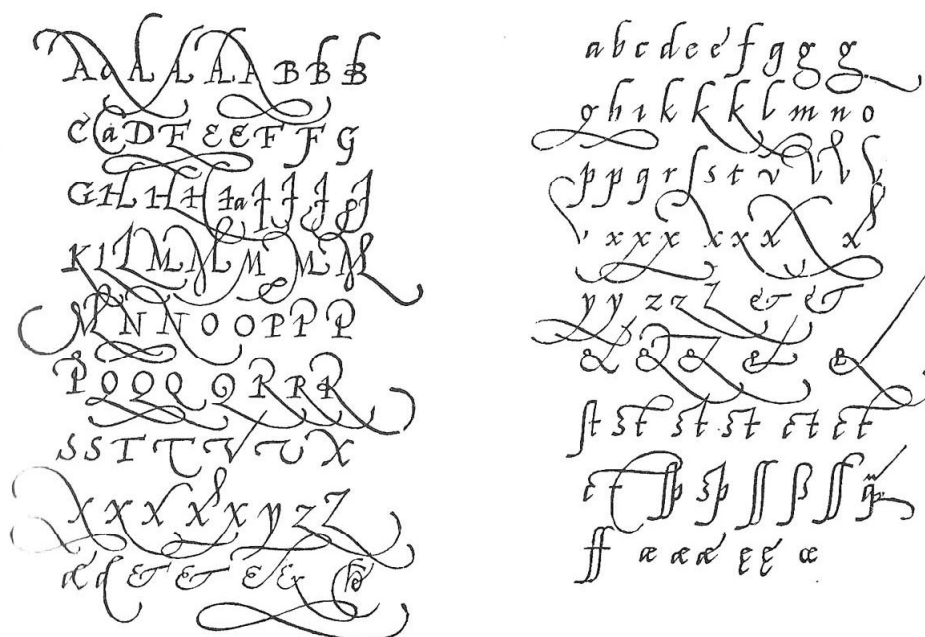 A a A A A A B B B
C a D E E E F F G
G H H H ta J J J J
K l L M M M M M M
M N N O O P P P
P Q Q Q Q R R R
S S T T V T X
X x X X x y z Z
æ & & & & &
a b c d e e f g g g
g h ı k k k l m n o
p p q r ſ s t v v v v
v x x x x x x x
y y z z Z & &
& & & & &
ſt st st st ct ct
ct ſp sp ſſ ß ſſ
ff æ æ æ ę ę œ